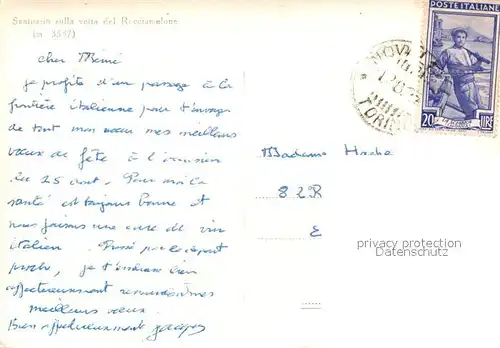 Santuario sulla vetta del Rocciamelone
(m 3537)
POSTE ITALIANE
20 LIRE
NOV
TORI
cher Mémé
je profite d'un passage à la
frontière italienne pour t'envoyer
de tout mon coeur mes meilleurs
voeux de fête à l'occasion
du 25 aout. Pour moi la
santé est toujours bonne et
nous faisons une cure de vin
italien.
proche, je t'embrasse bien
affectueusement
meilleurs voeux.
Bien affectueusement Jacques
Madame Hoche
82R
E
privacy protection
Datenschutz